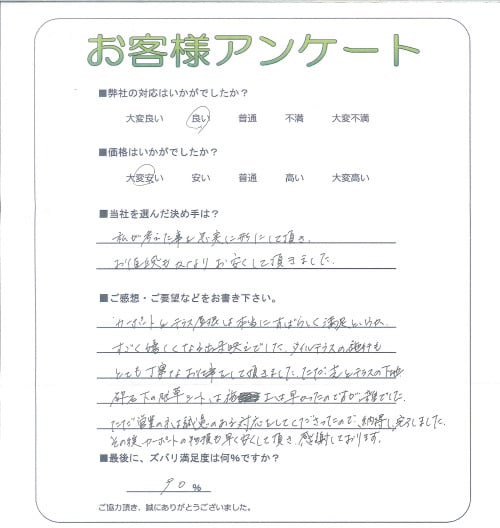 お客様アンケート
■弊社の対応はいかがでしたか？
大変良い 良い 普通 不満 大変不満
■価格はいかがでしたか？
大変安い 安い 普通 高い 大変高い
■当社を選んだ決め手は？
私が考えた事を忠実に形にして頂き、
お値段もかなりお安くして頂きました。
■ご感想・ご要望などをお書き下さい。
カーポートとテラス屋根は本当にすばらしく満足というか、
すごく嬉しくなる出来映えでした。タイルテラスの施行も
とても丁寧なお仕事をして頂きました。ただ、テラスの下地
砕石下の防草シートは 早かったのですが雑でした。
ただ営業の 誠意のある対応をしてくださったので、納得し完了しました。
その後カーポートの も早く安くして頂き感謝しております。
■最後に、ズバリ満足度は何%ですか？
90 %
ご協力頂き、誠にありがとうございました。